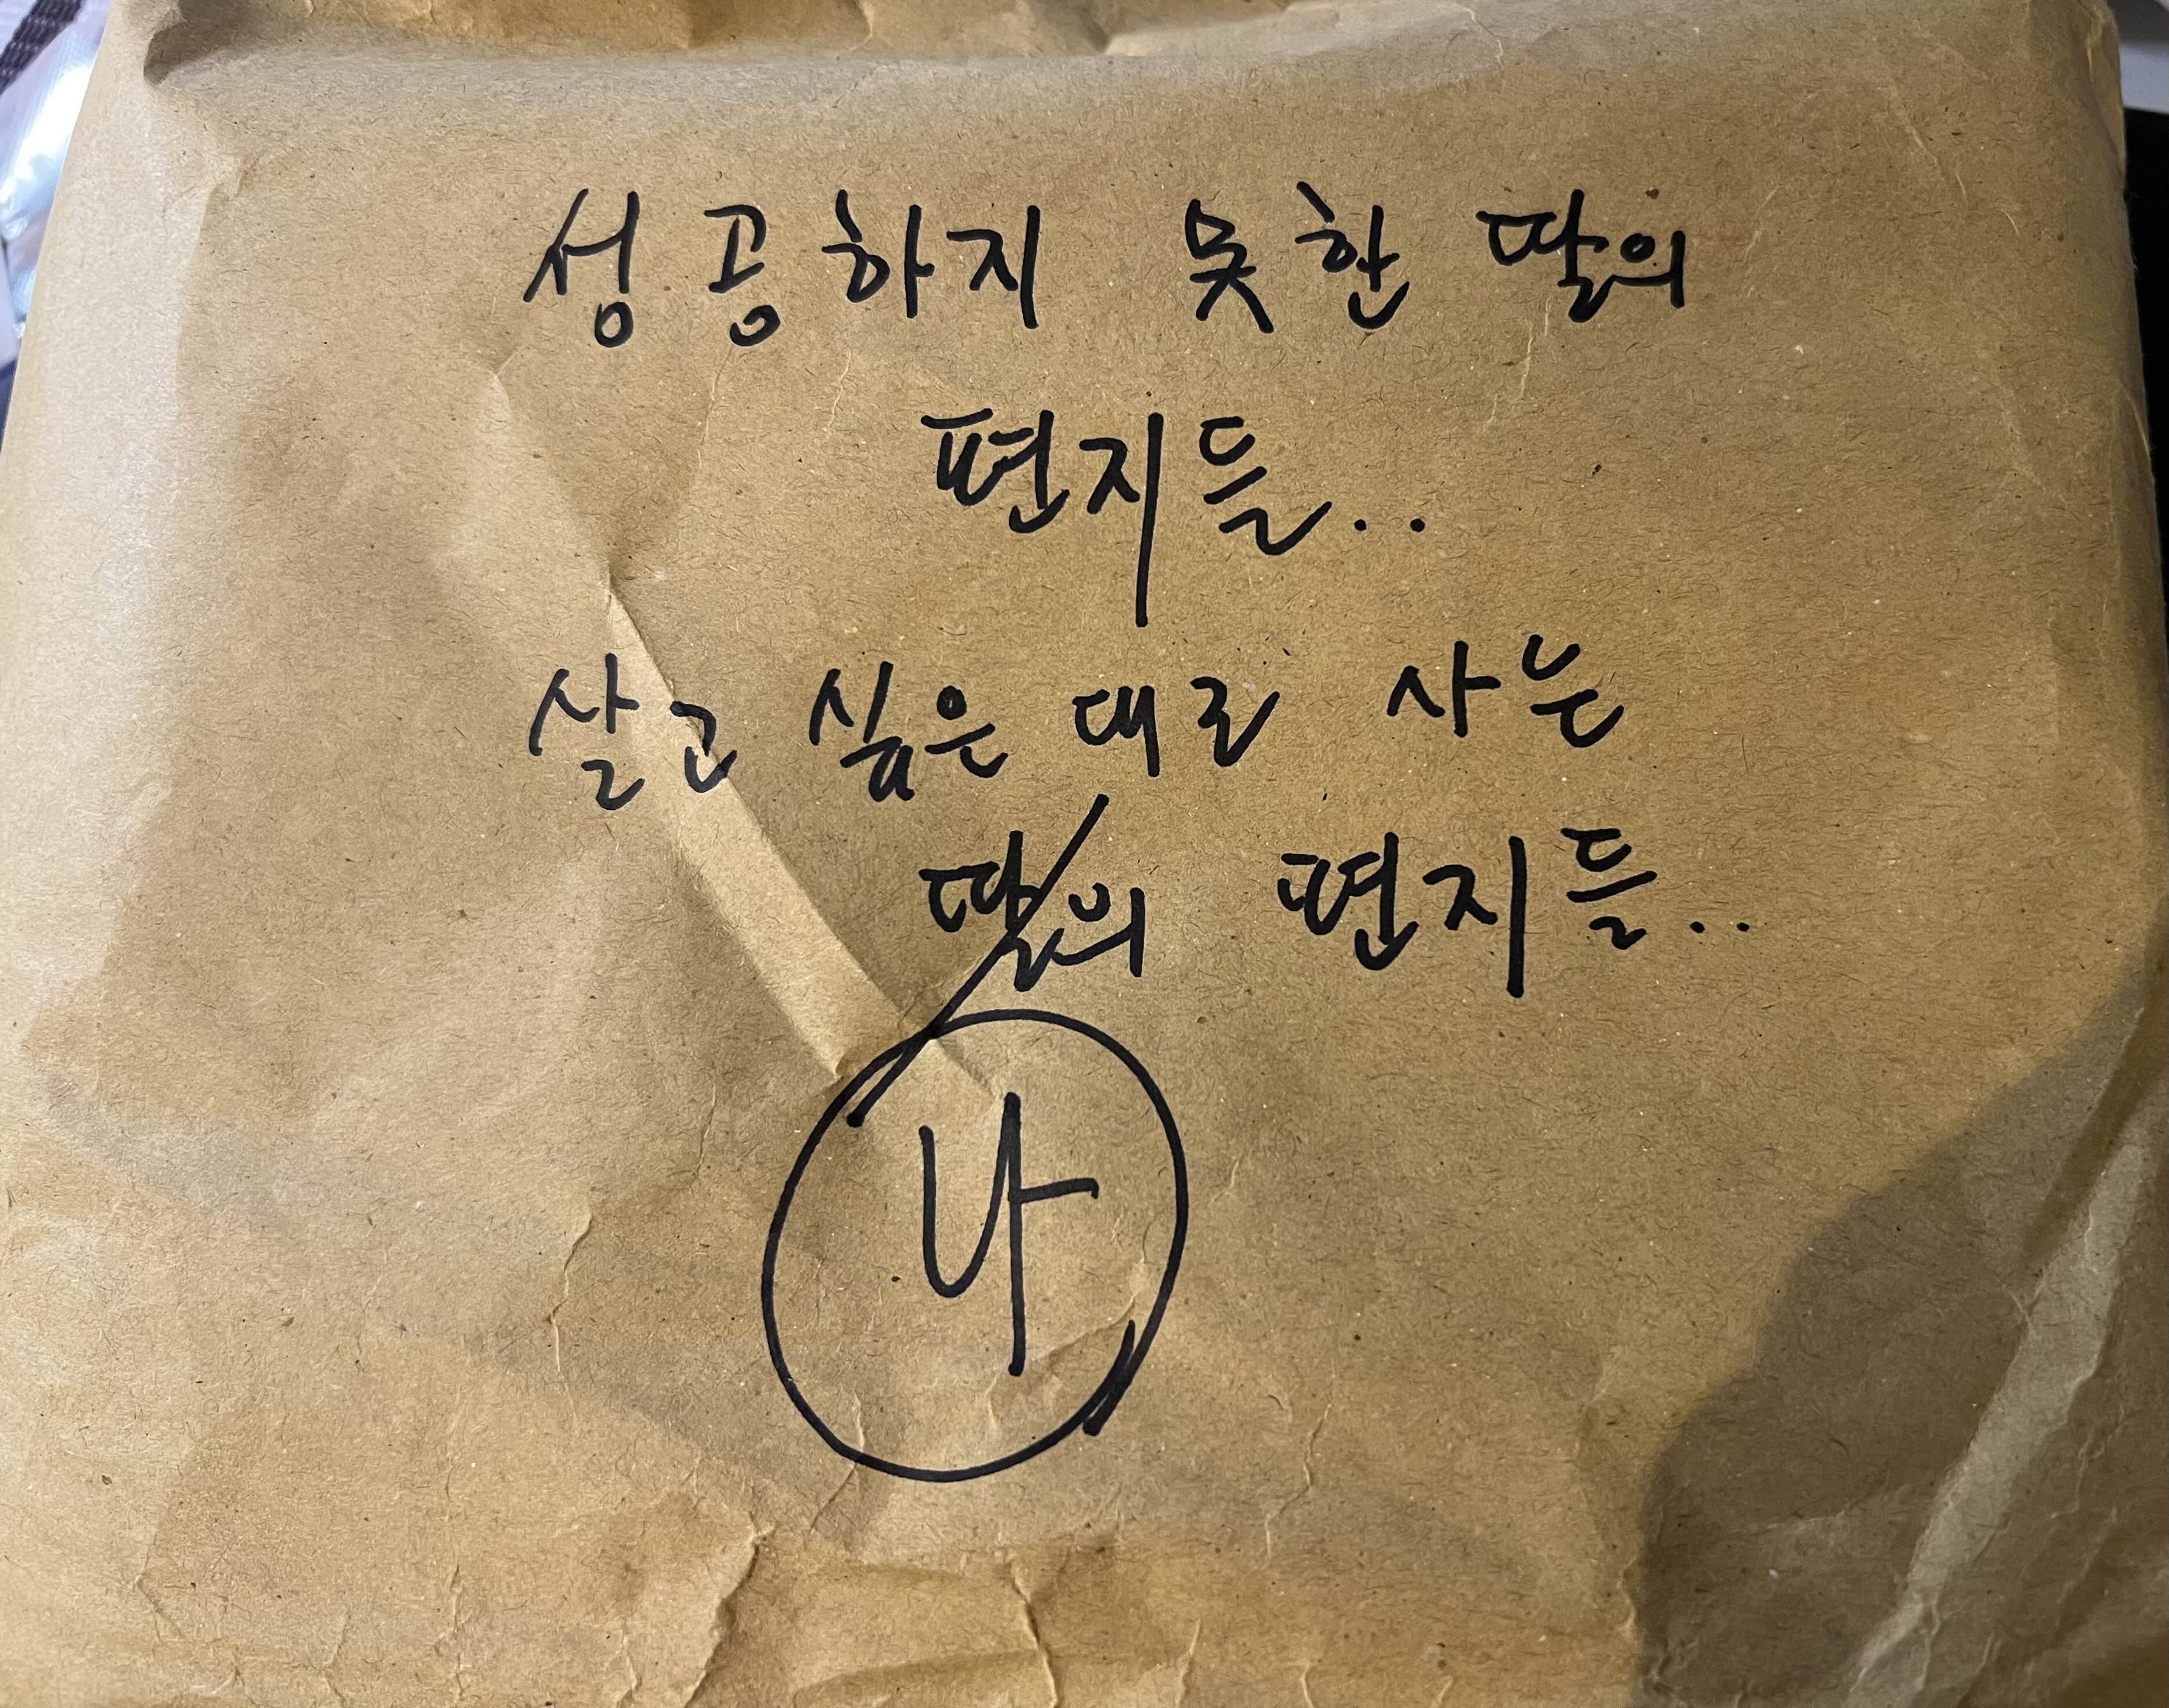 성공하지 못한 딸의
편지들..
살고 싶은 대로 사는
딸의 편지들..
나